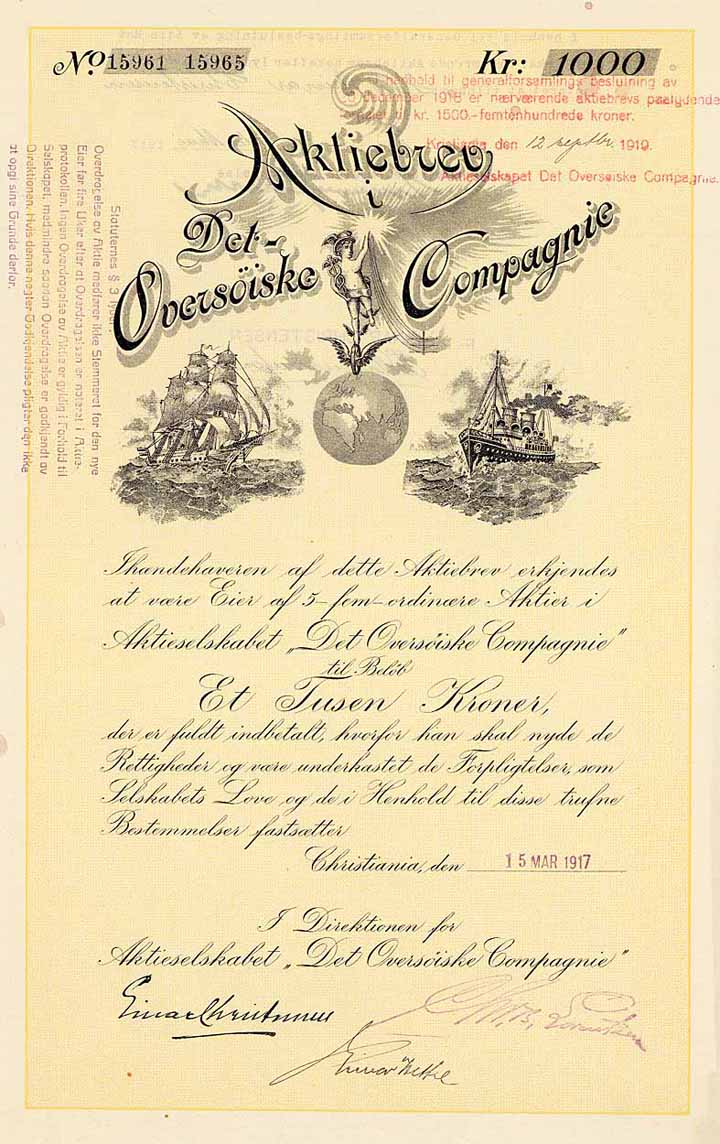 No 15961 15965
Kr: 1000
henhold til generalforsamlings beslutning av
december 1918 er nærværende aktiebrevs paalydende
til kr. 1500.-femtenhundrede kroner.
Kristiania den 12 septbr. 1919.
Aktieselskapet Det Oversøiske Compagnie.
Aktiebrev
i
Det
Oversöiske Compagnie
Statuternes § 3 lyder:
Overdragelse av Aktie medfører ikke Stemmeret for den nye
Eier før fire Uker efter at Overdragelsen er noteret i Aktie-
protokollen. Ingen Overdragelse av Aktie er gyldig i Forhold til
Selskapet, medmindre saadan Overdragelse er godkjendt av
Direktionen. Hvis denne negter Godkjendelse pligter den ikke
at opgi sine Grunde derfor.
Ihændehaveren af dette Aktiebrev erkjendes
at være Eier af 5-fem-ordinære Aktier i
Aktieselskabet „Det Oversöiske Compagnie"
til Belöb
Et Tusen Kroner,
der er fuldt indbetalt, hvorfor han skal nyde de
Rettigheder og være underkastet de Forpligtelser, som
Selskabets Love og de i Henhold til disse trufne
Bestemmelser fastsætter
Christiania, den 15 MAR 1917
I Direktionen for
Aktieselskabet „Det Oversöiske Compagnie"
Einar Christensen